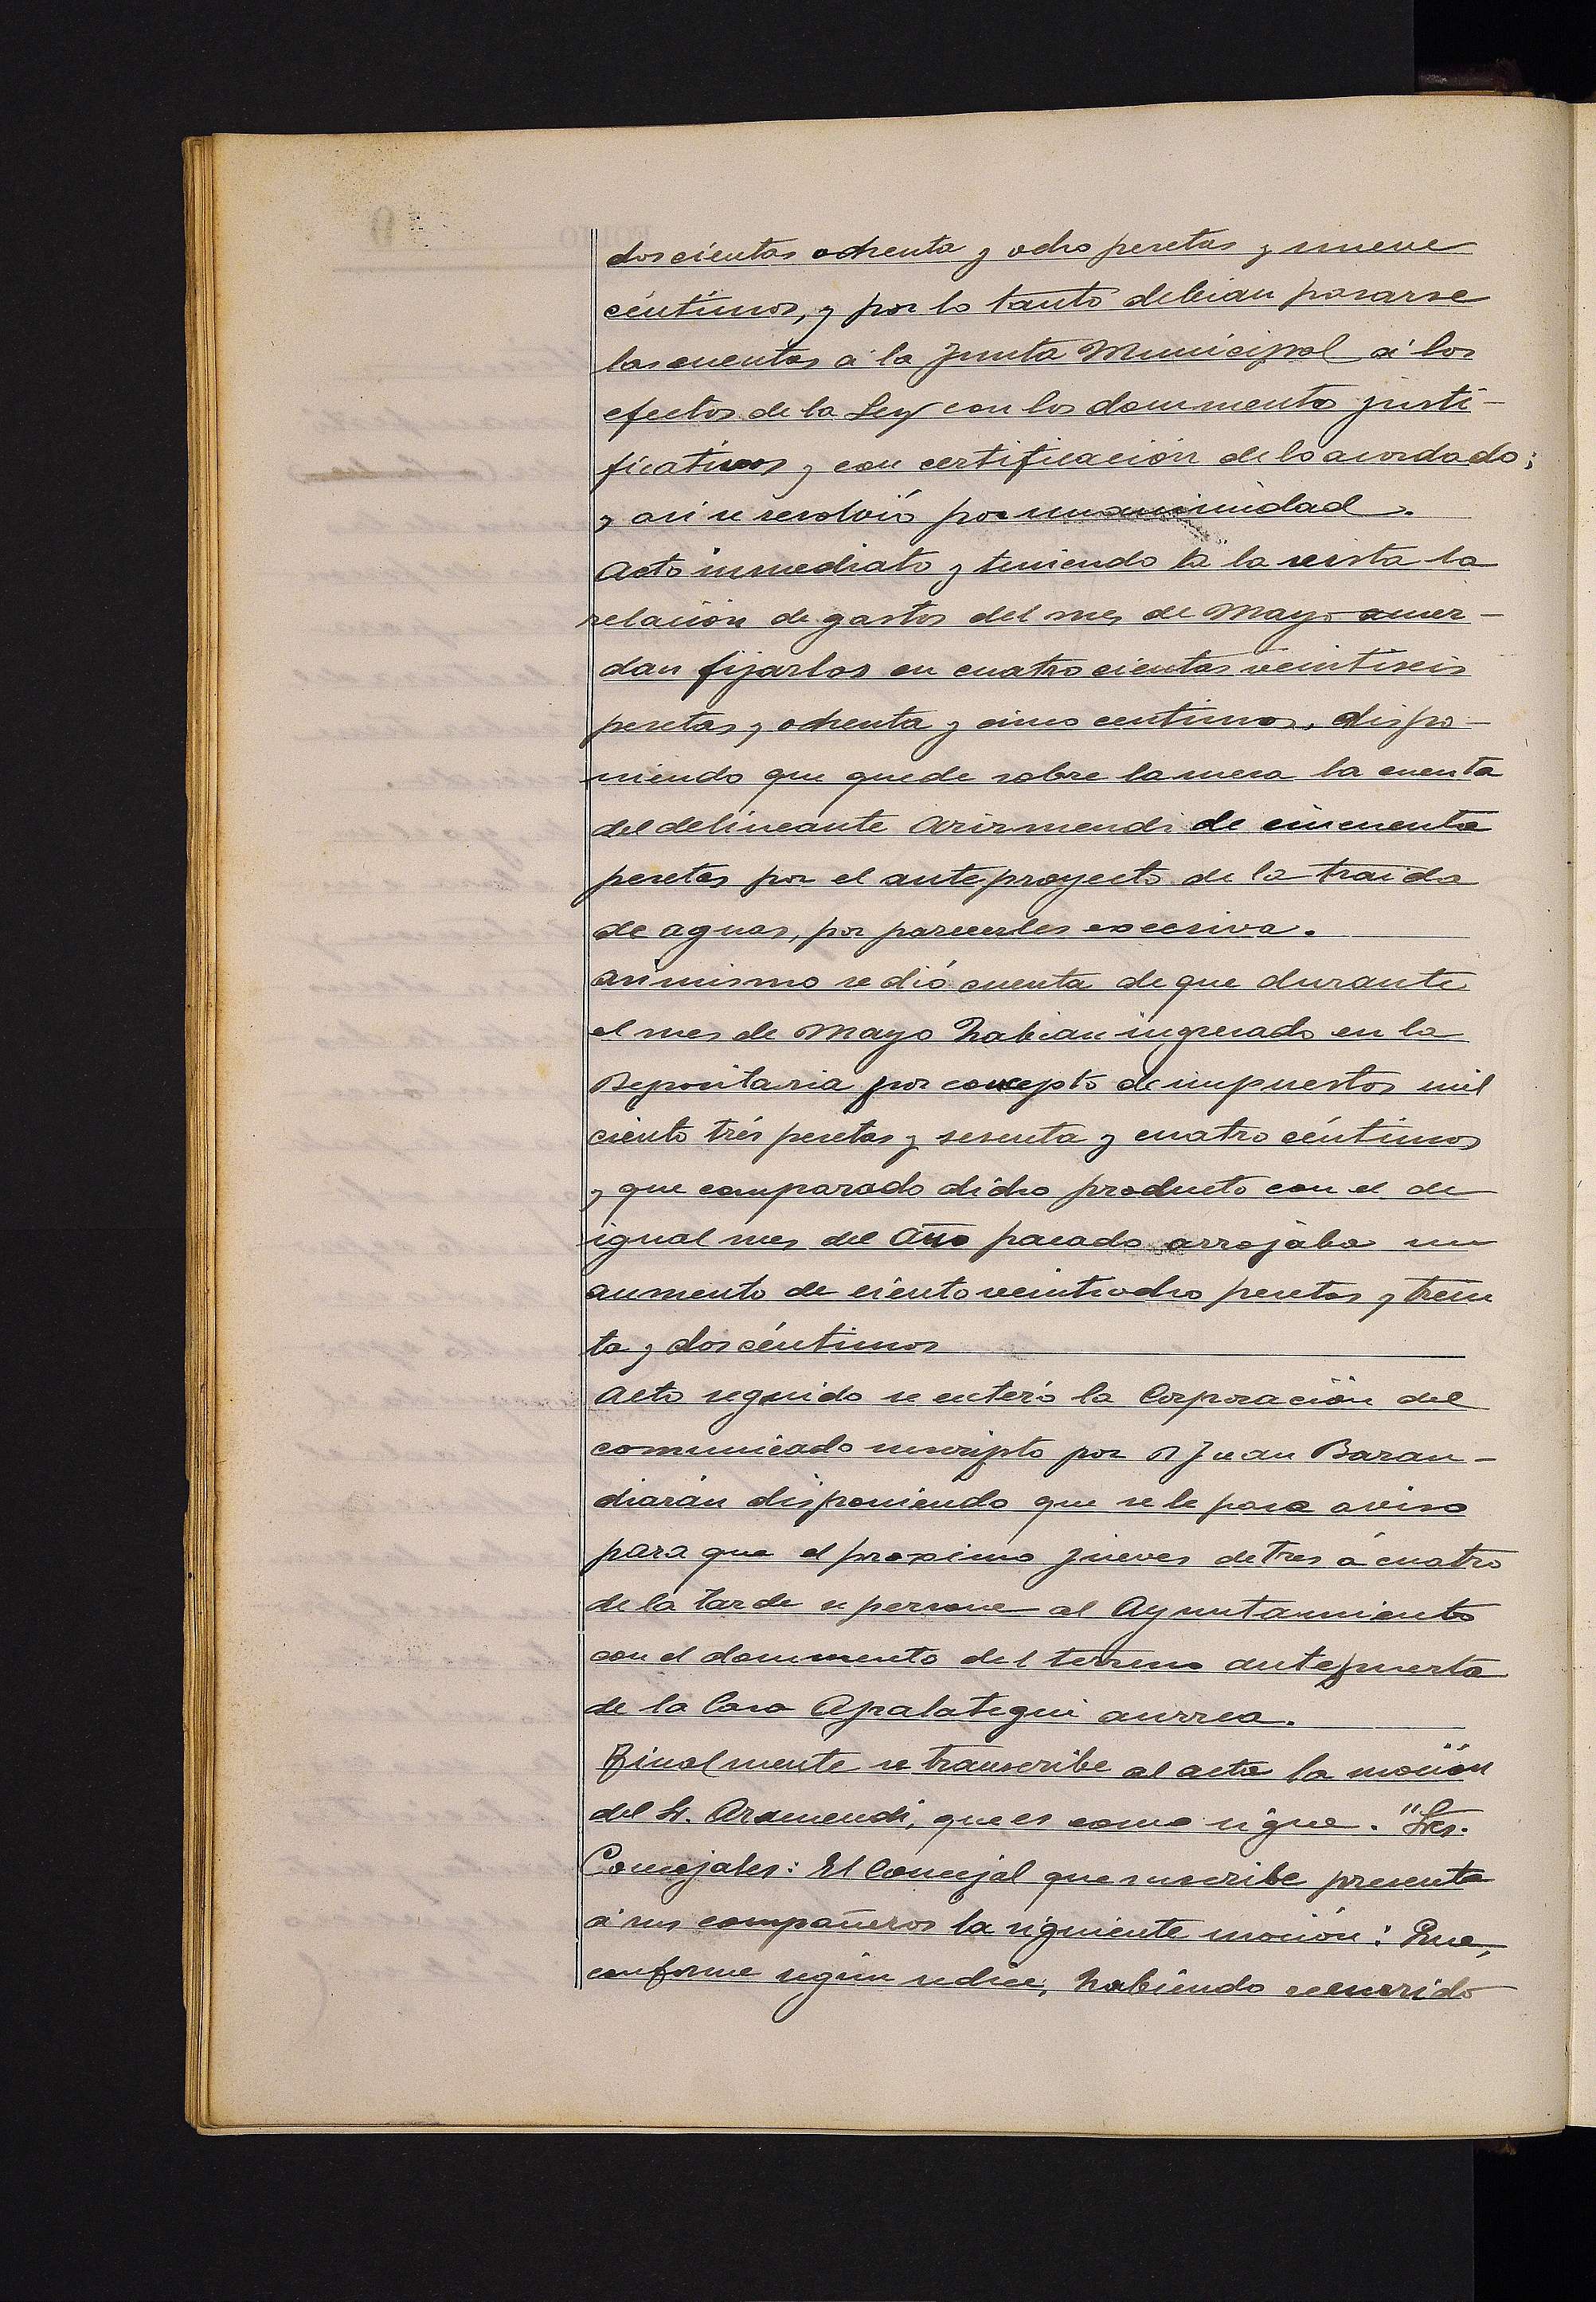 doscientas ochenta y ocho pesetas y nueve
céntimos, y por lo tanto debian pasarse
las cuentas á la Junta Municipal á los
efectos de la Ley con los documento justi-
ficativos y con certificación de lo acordado;
y asi se resolvió por unanimidad.
Acto inmediato y teniendo á la vista la
relación de gastos del mes de Mayo acuer-
dan fijarlos en cuatrocientas veintiseis
pesetas y ochenta y cinco centimos, dispo-
niendo que quede sobre la mesa la cuenta
del delineante Arizmendi de cincuenta
pesetas por el anteproyecto de la traida
de aguas, por parecerles excesiva.
Asimismo se dió cuenta de que durante
el mes de Mayo habian ingresado en la
Depositaria por concepto de impuestos mil
ciento trés pesetas y sesenta y cuatro céntimos
y que comparado dicho producto con el de
igual mes del Año pasado arrojaba un
aumento de ciento veintiocho pesetas y trein
ta y dos céntimos
Acto seguido se enteró la Corporación del
comunicado suscripto por D Juan Baran-
diarán disponiendo que se le pase aviso
para que el proximo Jueves de tres á cuatro
de la tarde se persone al Ayuntamiento
con el documento del terreno antepuerta
de la Casa Apalategui aurrea.
Finalmente se transcribe al acta la moción
del Sr. Aramendi, que es como sigue. "Sres.
Concejales: El Concejal que suscribe presenta
á sus compañeros la siguiente moción: Que,
conforme según se dice, habiendo recurrido